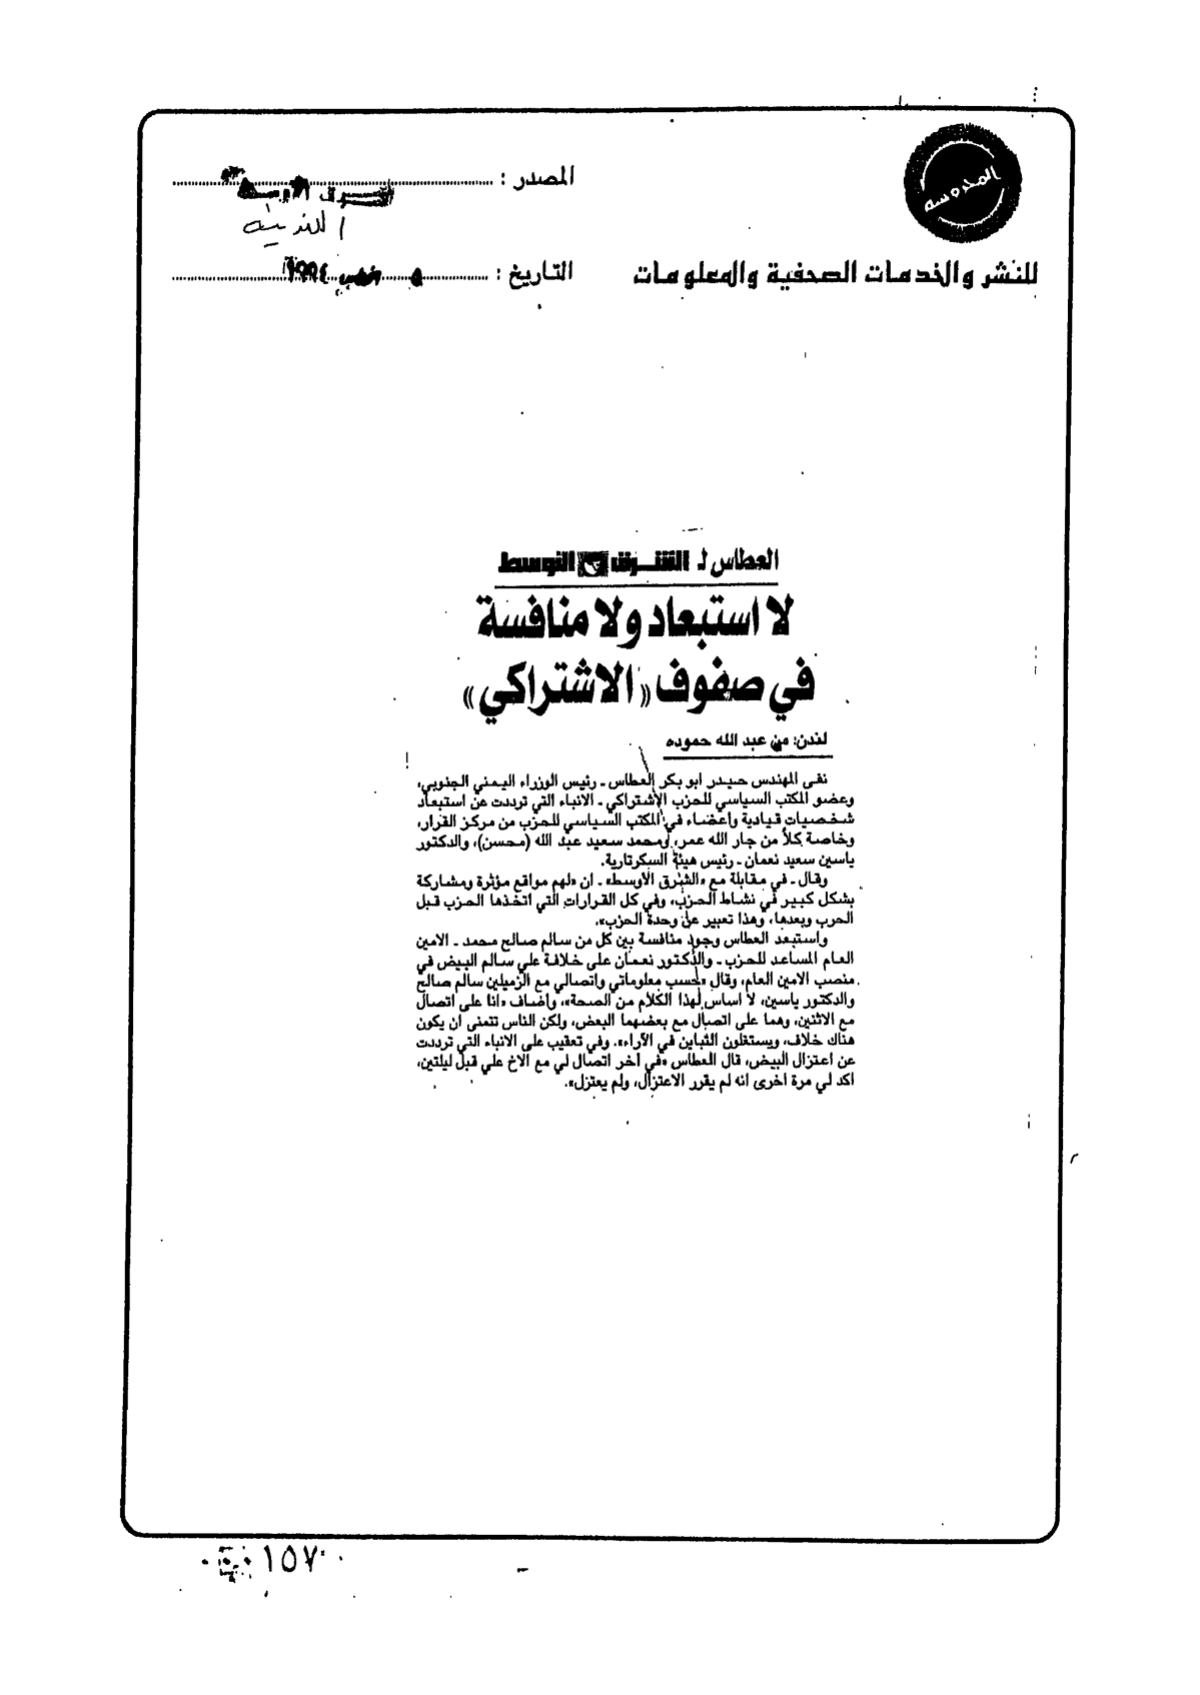 المحروسة
المصدر : الشرق الاوسط
اللندنية
للنشر والخدمات الصحفية والمعلومات
التاريخ : ١٩٩٤
العطاس لـ الشرق الاوسط
لا استبعاد ولا منافسة
في صفوف «الاشتراكي»
لندن: من عبد الله حموده
نفى المهندس حيدر ابو بكر العطاس ـ رئيس الوزراء اليمني الجنوبي،
وعضو المكتب السياسي للحزب الاشتراكي ـ الانباء التي ترددت عن استبعاد
شخصيات قيادية واعضاء في المكتب السياسي للحزب من مركز القرار،
وخاصة كلاً من جار الله عمر، ومحمد سعيد عبد الله (محسن)، والدكتور
ياسين سعيد نعمان ـ رئيس هيئة السكرتارية.
وقال ـ في مقابلة مع «الشرق الأوسط» ـ ان «لهم مواقع مؤثرة ومشاركة
بشكل كبير في نشاط الحزب، وفي كل القرارات التي اتخذها الحزب قبل
الحرب وبعدها، وهذا تعبير عن وحدة الحزب».
واستبعد العطاس وجود منافسة بين كل من سالم صالح محمد ـ الامين
العام المساعد للحزب ـ والدكتور نعمان على خلافة علي سالم البيض في
منصب الامين العام، وقال «حسب معلوماتي واتصالي مع الزميلين سالم صالح
والدكتور ياسين، لا اساس لهذا الكلام من الصحة»، واضاف «انا على اتصال
مع الاثنين، وهما على اتصال مع بعضهما البعض، ولكن الناس تتمنى ان يكون
هناك خلاف، ويستغلون التباين في الآراء». وفي تعقيب على الانباء التي ترددت
عن اعتزال البيض، قال العطاس «في آخر اتصال لي مع الاخ علي قبل ليلتين،
اكد لي مرة اخرى انه لم يقرر الاعتزال، ولم يعتزل».
١٥٧